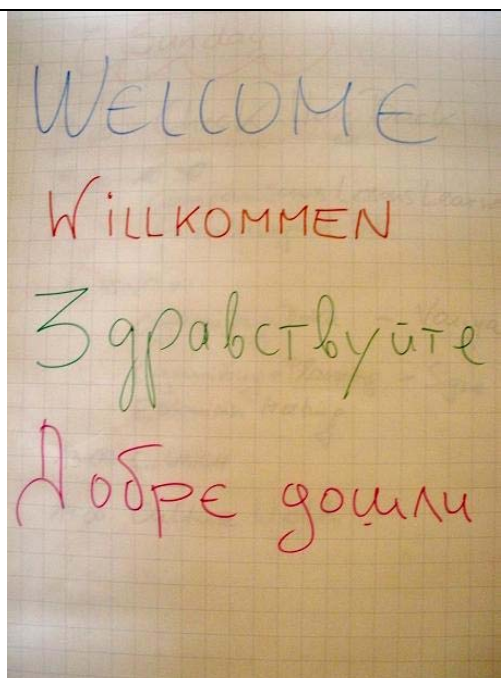 WELCOME
WiLLKOMMEN
Здравствуйте
Добре дошли